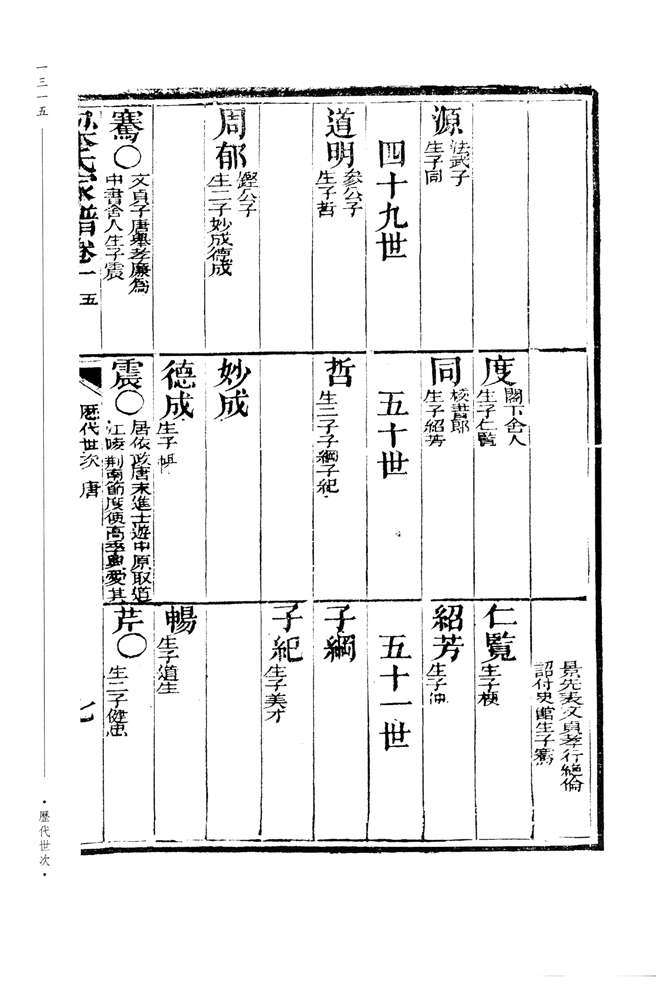 一三一五
景先表文貞孝行絶倫
詔付史館生子騫
度
閣下舍人
生子仁覧
仁覧
生子梗
源
法武子
生子同
同
校書郎
生子紹芳
紹芳
生子
四十九世
五十世
五十一世
道明
參公子
生子哲
哲
生二子子綱子紀
子綱
子紀
生子美才
周郁
鏗公子
生二子妙成德成
妙成
德成
生子暢
暢
生子道生
騫〇
文貞子唐舉孝廉爲
中書舍人生子震
震〇
居依政唐末進士遊中原取道
江陵荆南節度使高季興愛其
芹〇
生二子健忠
氏家譜卷一
五
歷代世次 唐
七
·歷代世次·